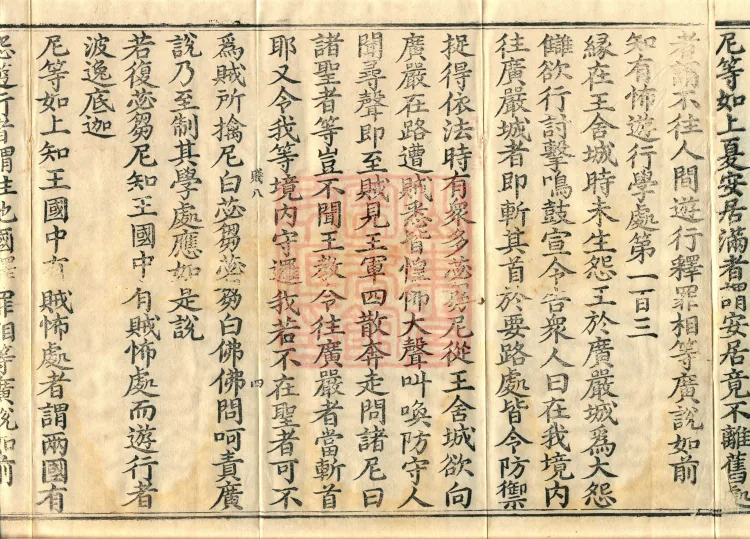 尼等如上夏安居滿者謂安居竟不離舊處
者而不往人間遊行釋罪相等廣說如前
知有怖遊行學處第一百三
緣在王舍城時未生怨王於廣嚴城為大怨
讎欲行討擊鳴鼓宣令告衆人曰在我境內
往廣嚴城者即斬其首於要路處皆令防禦
捉得依法時有衆多苾芻尼從王舍城欲向
廣嚴在路遭賊悉皆惶怖大聲叫喚防守人
聞尋聲即至賊見王軍四散奔走問諸尼曰
諸聖者等豈不聞王教令往廣嚴者當斬首
耶又令我等境內守邏我若不在聖者可不
賤八 四
為賊所擒尼白苾芻苾芻白佛佛問呵責廣
說乃至制其學處應如是說
若復苾芻尼知王國中有賊怖處而遊行者
波逸底迦
尼等如上知王國中有賊怖處者謂兩國有
怨遊行者謂往他國釋罪相等廣說如前